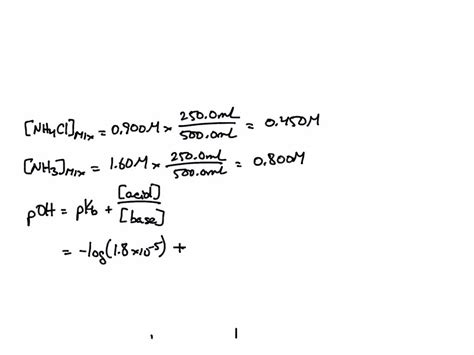 [NH4Cl]Mix = 0.900M × 250.0ml/500.0ml = 0.450M
[NH3]Mix = 1.60M × 250.0ml/500.0ml = 0.800M
pOH = pKb + [acid]/[base]
= -log(1.8×10^-5) +